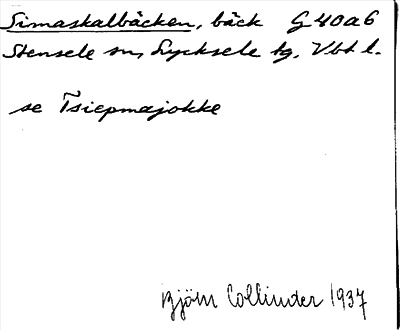 Simaskalbäcken, bäck G 40 a 6
Stensele sn, Lycksele tg. Vbt l.
se Tsiepmajokke
Björn Collinder 1937